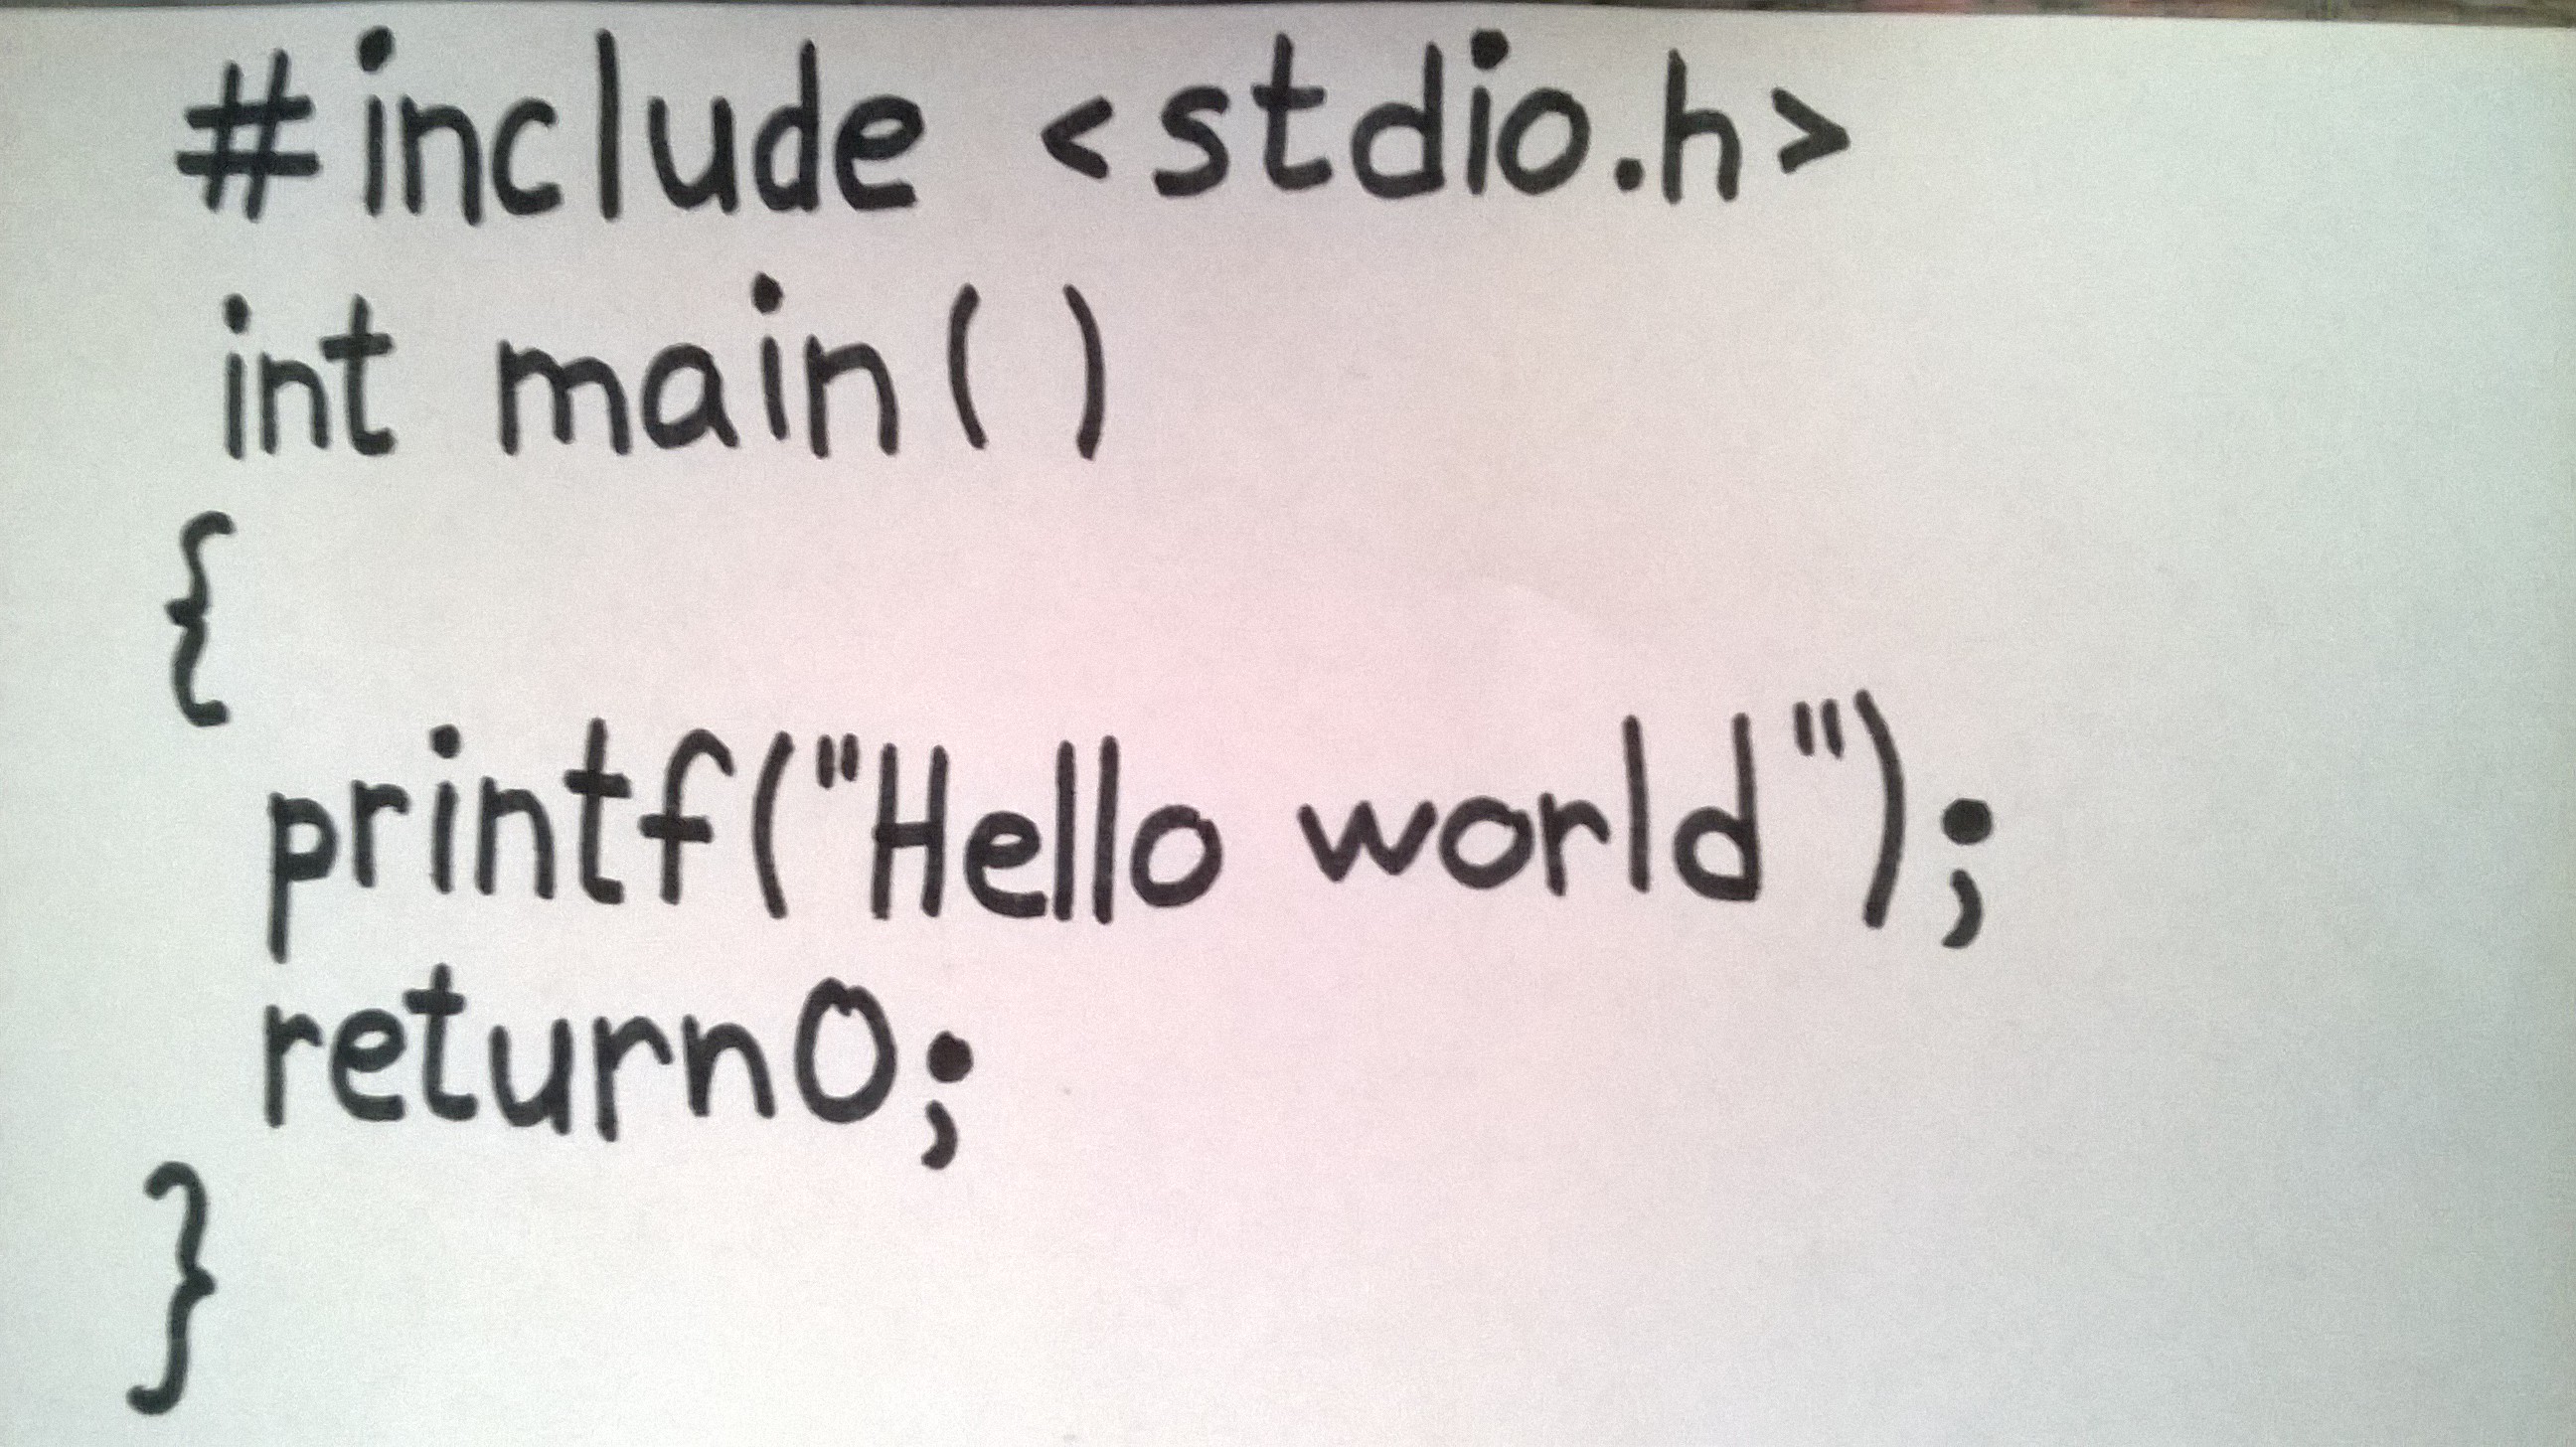 #include <stdio.h>
int main()
{
printf("Hello world");
return0;
}